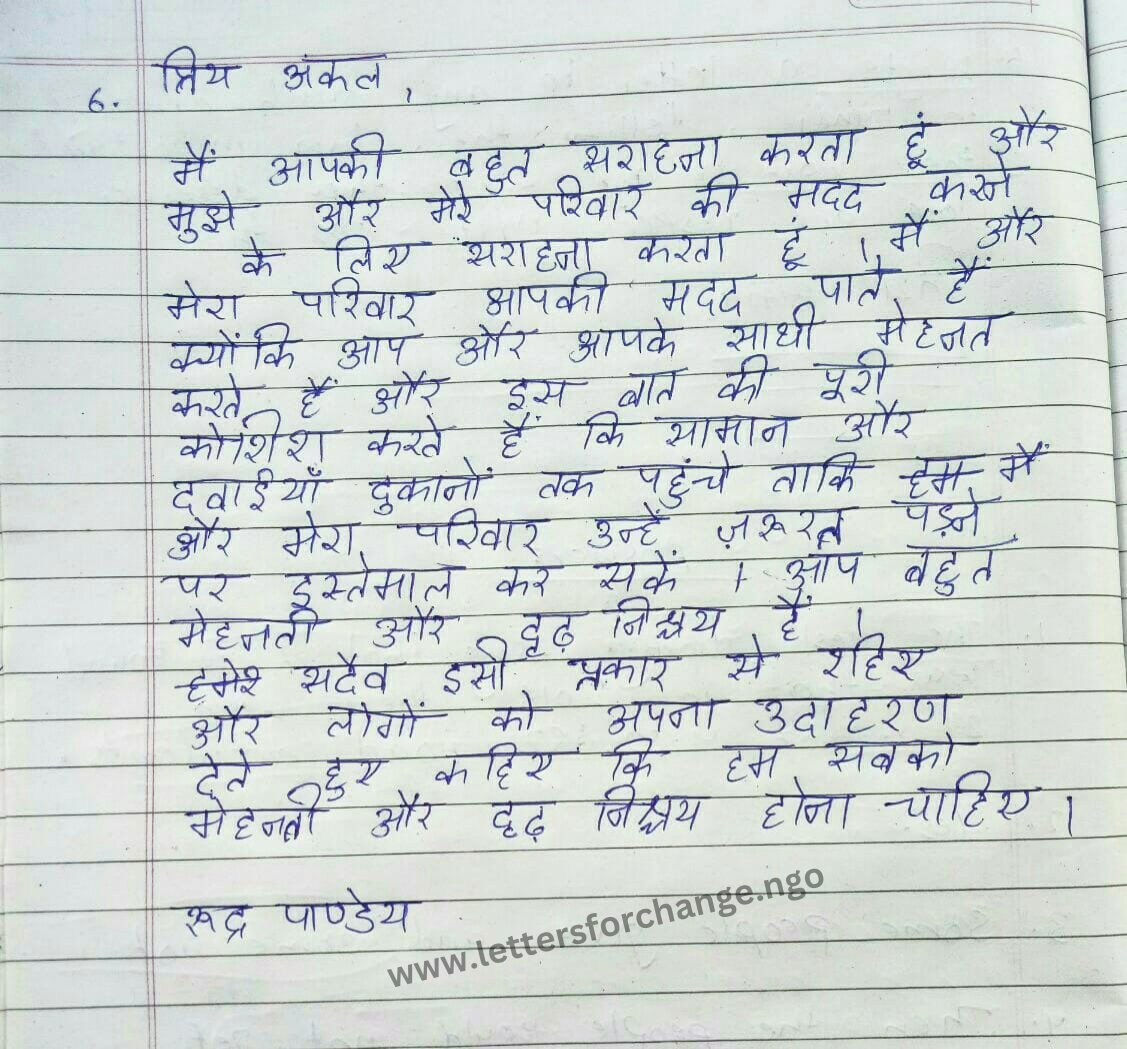 6. प्रिय अंकल,
मैं आपकी बहुत सराहना करता हूं और
मुझे और मेरे परिवार की मदद करने
के लिए सराहना करता हूं । मैं और
मेरा परिवार आपकी मदद पाते हैं
क्योंकि आप और आपके साथी मेहनत
करते हैं और इस बात की पूरी
कोशिश करते हैं कि सामान और
दवाईयाँ दुकानों तक पहुंचे ताकि हम मैं
और मेरा परिवार उन्हें ज़रूरत पड़ने
पर इस्तेमाल कर सकें । आप बहुत
मेहनती और दृढ़ निश्चय हैं ।
हमेश सदैव इसी प्रकार से रहिए
और लोगों को अपना उदाहरण
देते हुए कहिए कि हम सबको
मेहनती और दृढ़ निश्चय होना चाहिए ।
रूद्र पाण्डेय
www.lettersforchange.ngo